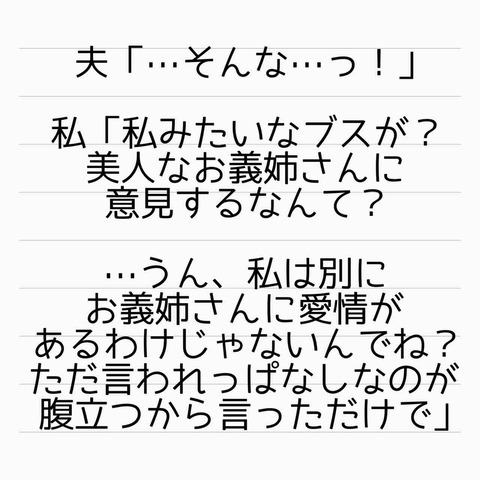 夫「…そんな…っ！」
私「私みたいなブスが？
美人なお義姉さんに
意見するなんて？
…うん、私は別に
お義姉さんに愛情が
あるわけじゃないんでね？
ただ言われっぱなしなのが
腹立つから言っただけで」